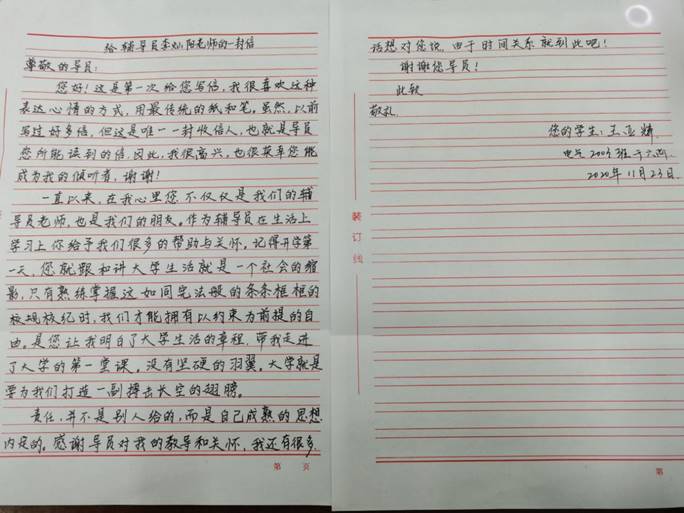 给辅导员李灿阳老师的一封信
尊敬的导员：
您好！这是第一次给您写信，我很喜欢这种
表达心情的方式，用最传统的纸和笔。虽然，以前
写过好多信，但这是唯一一封收信人，也就是导员
您所能读到的信，因此，我很高兴，也很荣幸您能
成为我的倾听者，谢谢！
一直以来，在我心里您不仅仅是我们的辅
导员老师，也是我们的朋友。作为辅导员在生活上
学习上你给予我们很多的帮助与关怀。记得开学第
一天，您就跟和讲大学生活就是一个社会的缩
影，只有熟练掌握这如同宪法般的条条框框的
校规校纪时，我们才能拥有以约束为前提的自
由。是您让我明白了大学生活的章程，带我走进
了大学的第一堂课。没有坚硬的羽翼，大学就是
要为我们打造一副搏击长空的翅膀。
责任，并不是别人给的，而是自己成熟的思想
内定的。感谢导员对我的教导和关怀，我还有很多
第 页
话想对您说，由于时间关系就到此吧！
谢谢您导员！
此致
敬礼
您的学生：王
电气2003班
2020年11月23日
装订线
第